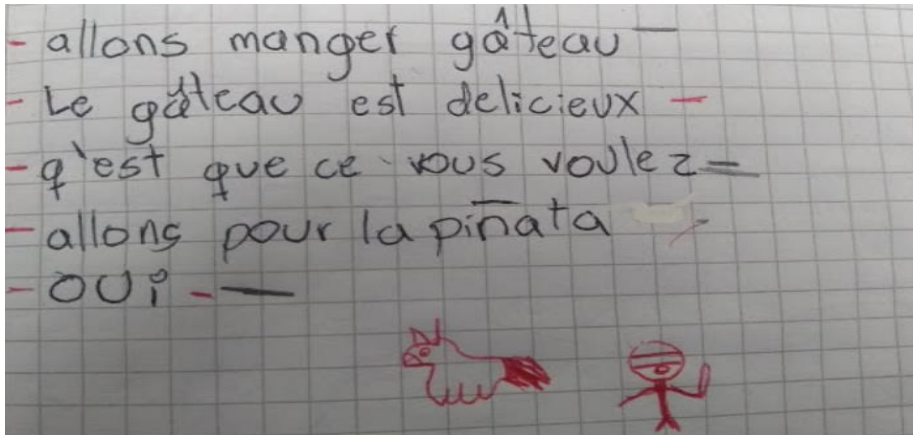 - allons manger gâteau -
- Le gâteau est delicieux -
- q'est que ce vous voulez -
- allons pour la piñata -
- oui -